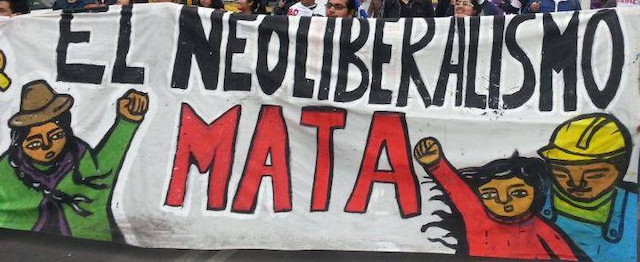 EL NEOLIBERALISMO
MATA